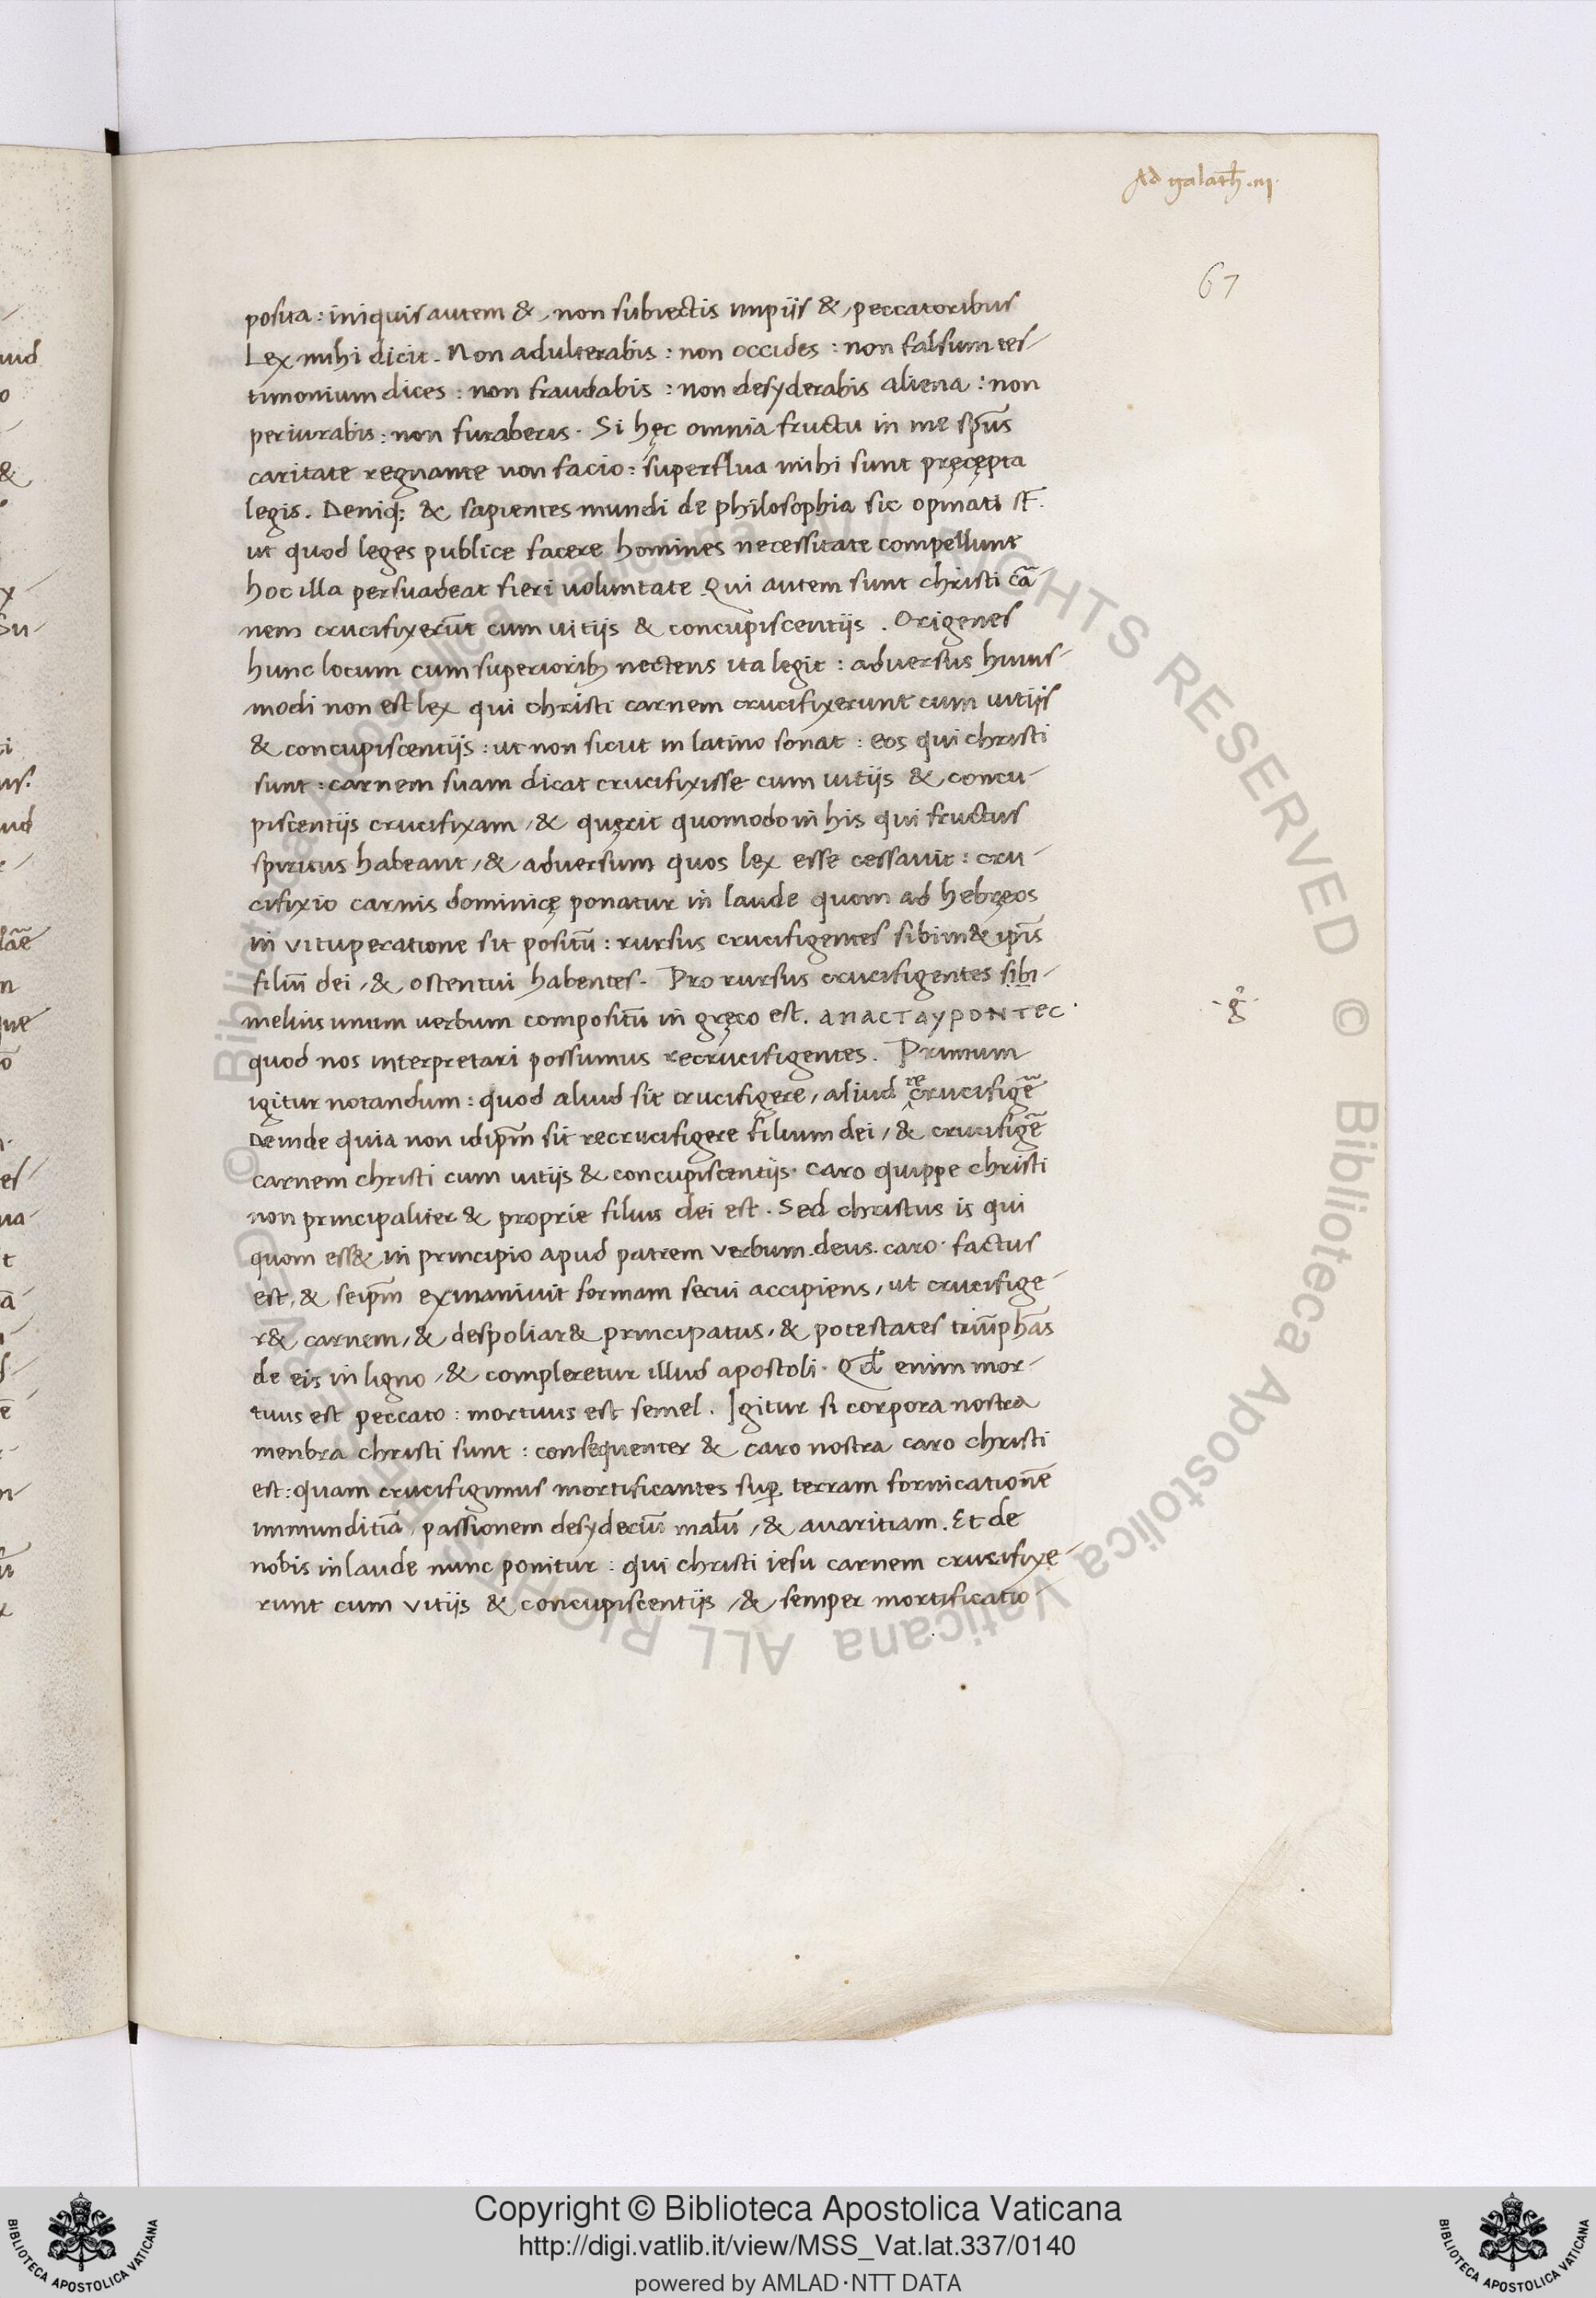 Ad galath̅ .III.
67
posita : iniquis autem & non subiectis impijs & peccatoribus
Lex mihi dicit . Non adulterabis : non occides : non falsum tes-
timonium dices : non fraudabis : non desyderabis aliena : non
periurabis : non furaberis . Si hęc omnia fructu in me sp̅us
caritate regnante non facio : superflua mihi sunt pręcępta
legis . Deniq; & sapientes mundi de philosophia sic opinati st̅ .
ut quod leges publice facere homines necessitate compellunt
hoc illa persuadeat fieri uoluntate Qui autem sunt christi ca̅
nem crucifixeru̅t cum uitijs & concupiscentijs . Origenes
hunc locum cum superiorib; nectens ita legit : aduersus huius-
modi non est lex qui christi carnem crucifixerunt cum uitijs
& concupiscentijs : ut non sicut in latino sonat : eos qui christi
sunt : carnem suam dicat crucifixisse cum uitijs & concu-
piscentijs crucifixam , & quęrit quomodo in his qui fructus
spiritus habeant , & aduersum quos lex esse cessauit : cru-
cifixio carnis dominicę ponatur in laude quom ad hebręos
in vituperatione sit positu̅ : rursus crucifigentes sibim& ip̅is
filiu̅ dei , & ostentui habentes . Pro rursus crucifigentes sibi-
melius unum uerbum compositu̅ in gręco est . ANACTAYPONTEC .
·g̊·
quod nos interpretari possumus recrucifigentes . Primum
igitur notandum : quod aliud sit crucifigere , aliud recrucifige̅
Deinde quia non idip̅m sit recrucifigere filium dei , & crucifige̅
carnem christi cum uitijs & concupiscentijs . Caro quippe christi
non principaliter & proprie filius dei est . Sed christus is qui
quom ess& in principio apud patrem verbum . deus . caro . factus
est , & seip̅m exinaniuit formam serui accipiens , ut crucifige-
r& carnem , & despoliar& principatus , & potestates triu̅pha̅s
de eis in ligno , & compleretur illud apostoli . Qd̅ enim mor-
tuus est peccato : mortuus est semel . Igitur si corpora nostra
menbra christi sunt : consequenter & caro nostra caro christi
est : quam crucifigimus mortificantes sup̲ terram fornicatione̅
immunditia̅ , passionem desyderiu̅ malu̅ , & auaritiam . Et de
nobis in laude nunc ponitur : qui christi iesu carnem crucifixe-
runt cum vitijs & concupiscentijs , & semper mortificatio-
Copyright © Biblioteca Apostolica Vaticana
http://digi.vatlib.it/view/MSS_Vat.lat.337/0140
powered by AMLAD·NTT DATA